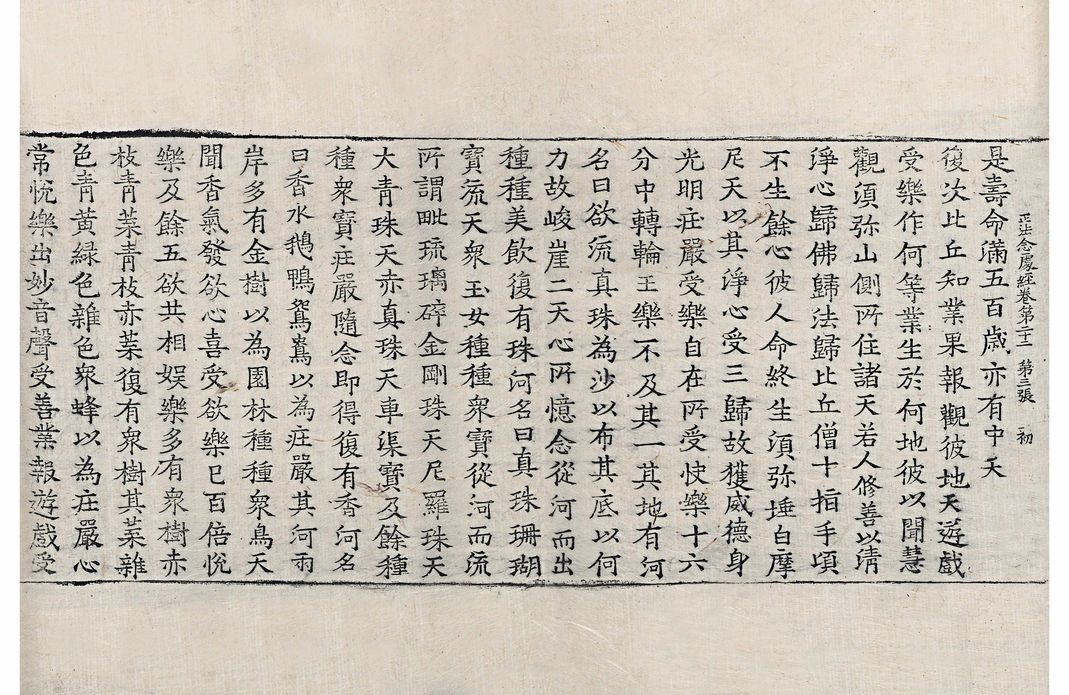 是壽命滿五百歲亦有中夭
正法念處經卷第二十二 第三張 初
復次比丘知業果報觀彼地天遊戲
受樂作何等業生於何地彼以聞慧
觀須弥山側所住諸天若人修善以清
淨心歸佛歸法歸比丘僧十指手頃
不生餘心彼人命終生須弥埵白摩
尼天以其淨心受三歸故獲威德身
光明庄嚴受樂自在所受快樂十六
分中轉輪王樂不及其一其地有河
名曰欲流真珠為沙以布其底以何
力故峻崖二天心所憶念從河而出
種種美飲復有珠河名曰真珠珊瑚
寶流天衆玉女種種衆寶從河而流
所謂毗琉璃碎金剛珠天尼羅珠天
大青珠天赤真珠天車渠寶及餘種
種衆寶庄嚴隨念即得復有香河名
曰香水鵝鴨鴛鴦以為庄嚴其河兩
岸多有金樹以為園林種種衆鳥天
聞香氣發欲心喜受欲樂已百倍悅
樂及餘五欲共相娛樂多有衆樹赤
枝青葉青枝赤葉復有衆樹其葉雜
色青黃綠色雜色衆蜂以為庄嚴心
常悅樂出妙音聲受善業報遊戲受